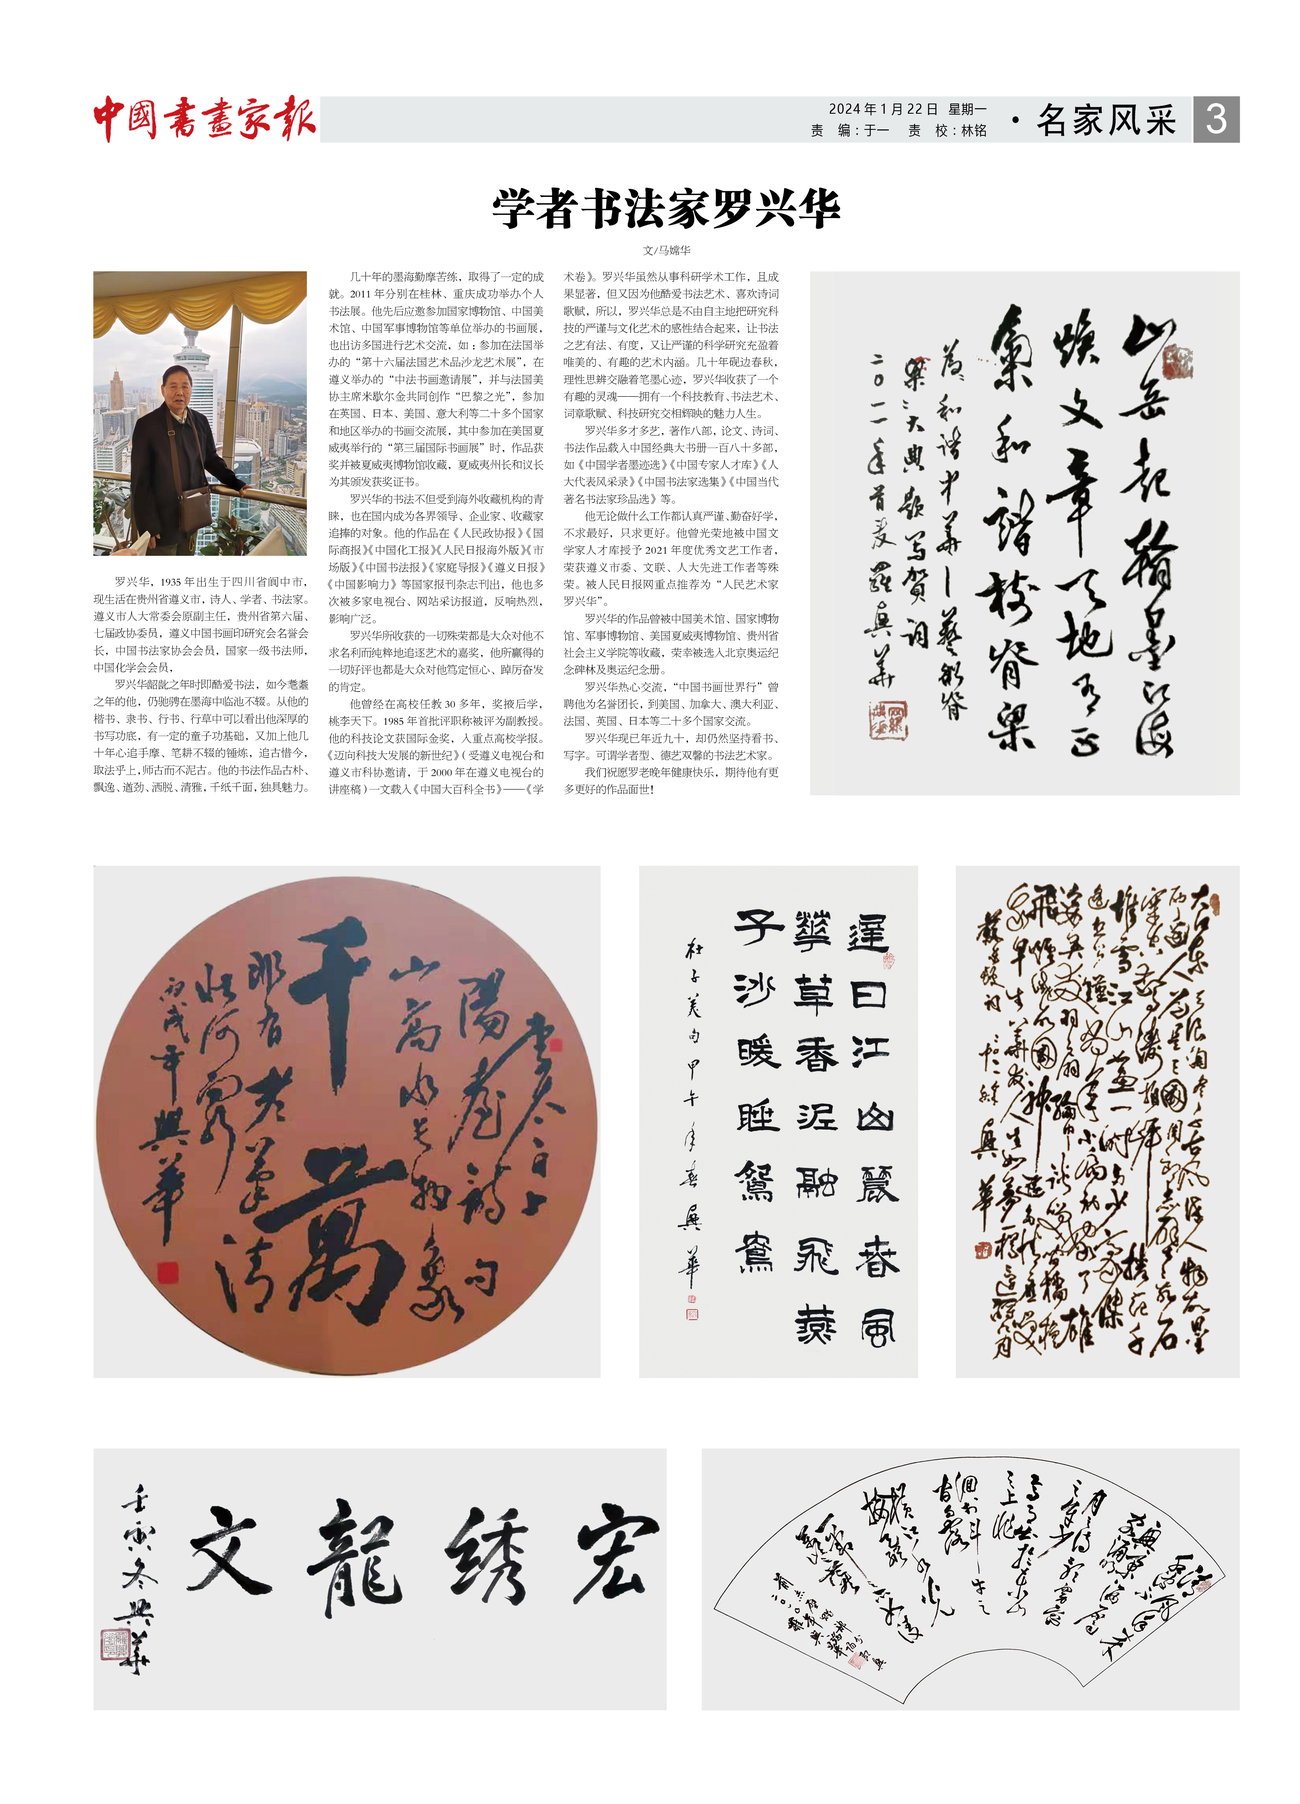 中國書畫家報
2024年1月22日 星期一
责 编：于一 责 校：林铭
·名家风采
3
学者书法家罗兴华
文/马嫦华
罗兴华，1935年出生于四川省阆中市，
现生活在贵州省遵义市，诗人、学者、书法家。
遵义市人大常委会原副主任，贵州省第六届、
七届政协委员，遵义中国书画印研究会名誉会
长，中国书法家协会会员，国家一级书法师，
中国化学会会员，
罗兴华韶龀之年时即酷爱书法，如今耄耋
之年的他，仍驰骋在墨海中临池不辍。从他的
楷书、隶书、行书、行草中可以看出他深厚的
书写功底，有一定的童子功基础，又加上他几
十年心追手摩、笔耕不辍的锤炼，追古惜今，
取法乎上，师古而不泥古。他的书法作品古朴、
飘逸、遒劲、洒脱、清雅，千纸千面，独具魅力。
几十年的墨海勤摩苦练，取得了一定的成
就。2011年分别在桂林、重庆成功举办个人
书法展。他先后应邀参加国家博物馆、中国美
术馆、中国军事博物馆等单位举办的书画展，
也出访多国进行艺术交流，如：参加在法国举
办的“第十六届法国艺术品沙龙艺术展”，在
遵义举办的“中法书画邀请展”，并与法国美
协主席米歇尔金共同创作“巴黎之光”，参加
在英国、日本、美国、意大利等二十多个国家
和地区举办的书画交流展，其中参加在美国夏
威夷举行的“第三届国际书画展”时，作品获
奖并被夏威夷博物馆收藏，夏威夷州长和议长
为其颁发获奖证书。
罗兴华的书法不但受到海外收藏机构的青
睐，也在国内成为各界领导、企业家、收藏家
追捧的对象。他的作品在《人民政协报》《国
际商报》《中国化工报》《人民日报海外版》《市
场版》《中国书法报》《家庭导报》《遵义日报》
《中国影响力》等国家报刊杂志刊出，他也多
次被多家电视台、网站采访报道，反响热烈，
影响广泛。
罗兴华所收获的一切殊荣都是大众对他不
求名利而纯粹地追逐艺术的嘉奖，他所赢得的
一切好评也都是大众对他笃定恒心、踔厉奋发
的肯定。
他曾经在高校任教30多年，奖掖后学，
桃李天下。1985年首批评职称被评为副教授。
他的科技论文获国际金奖，入重点高校学报。
《迈向科技大发展的新世纪》（受遵义电视台和
遵义市科协邀请，于2000年在遵义电视台的
讲座稿）一文载入《中国大百科全书》——《学
术卷》。罗兴华虽然从事科研学术工作，且成
果显著，但又因为他酷爱书法艺术、喜欢诗词
歌赋，所以，罗兴华总是不由自主地把研究科
技的严谨与文化艺术的感性结合起来，让书法
之艺有法、有度，又让严谨的科学研究充盈着
唯美的、有趣的艺术内涵。几十年砚边春秋，
理性思辨交融着笔墨心迹，罗兴华收获了一个
有趣的灵魂——拥有一个科技教育、书法艺术、
词章歌赋、科技研究交相辉映的魅力人生。
罗兴华多才多艺，著作八部，论文、诗词、
书法作品载入中国经典大书册一百八十多部，
如《中国学者墨迹选》《中国专家人才库》《人
大代表风采录》《中国书法家选集》《中国当代
著名书法家珍品选》等。
他无论做什么工作都认真严谨、勤奋好学，
不求最好，只求更好。他曾光荣地被中国文
学家人才库授予2021年度优秀文艺工作者，
荣获遵义市委、文联、人大先进工作者等殊
荣。被人民日报网重点推荐为“人民艺术家
罗兴华”。
罗兴华的作品曾被中国美术馆、国家博物
馆、军事博物馆、美国夏威夷博物馆、贵州省
社会主义学院等收藏，荣幸被选入北京奥运纪
念碑林及奥运纪念册。
罗兴华热心交流，“中国书画世界行”曾
聘他为名誉团长，到美国、加拿大、澳大利亚、
法国、英国、日本等二十多个国家交流。
罗兴华现已年近九十，却仍然坚持看书、
写字。可谓学者型、德艺双馨的书法艺术家。
我们祝愿罗老晚年健康快乐，期待他有更
多更好的作品面世！
山岳起翰墨江海
焕文章天地有正
氣和諧樹脊梁
為和諧中華藝術脊
梁大典题写賀词
二〇一一年首夏羅興華
李太白上
陽臺詩句
山高水長物象
千萬
非有老筆清
壯何窮
丙戌年興華
遲日江山麗春風
華草香泥融飛燕
子沙暖睡鴛鴦
杜子美句甲午年春興華
宏绣龍文
壬寅冬興華